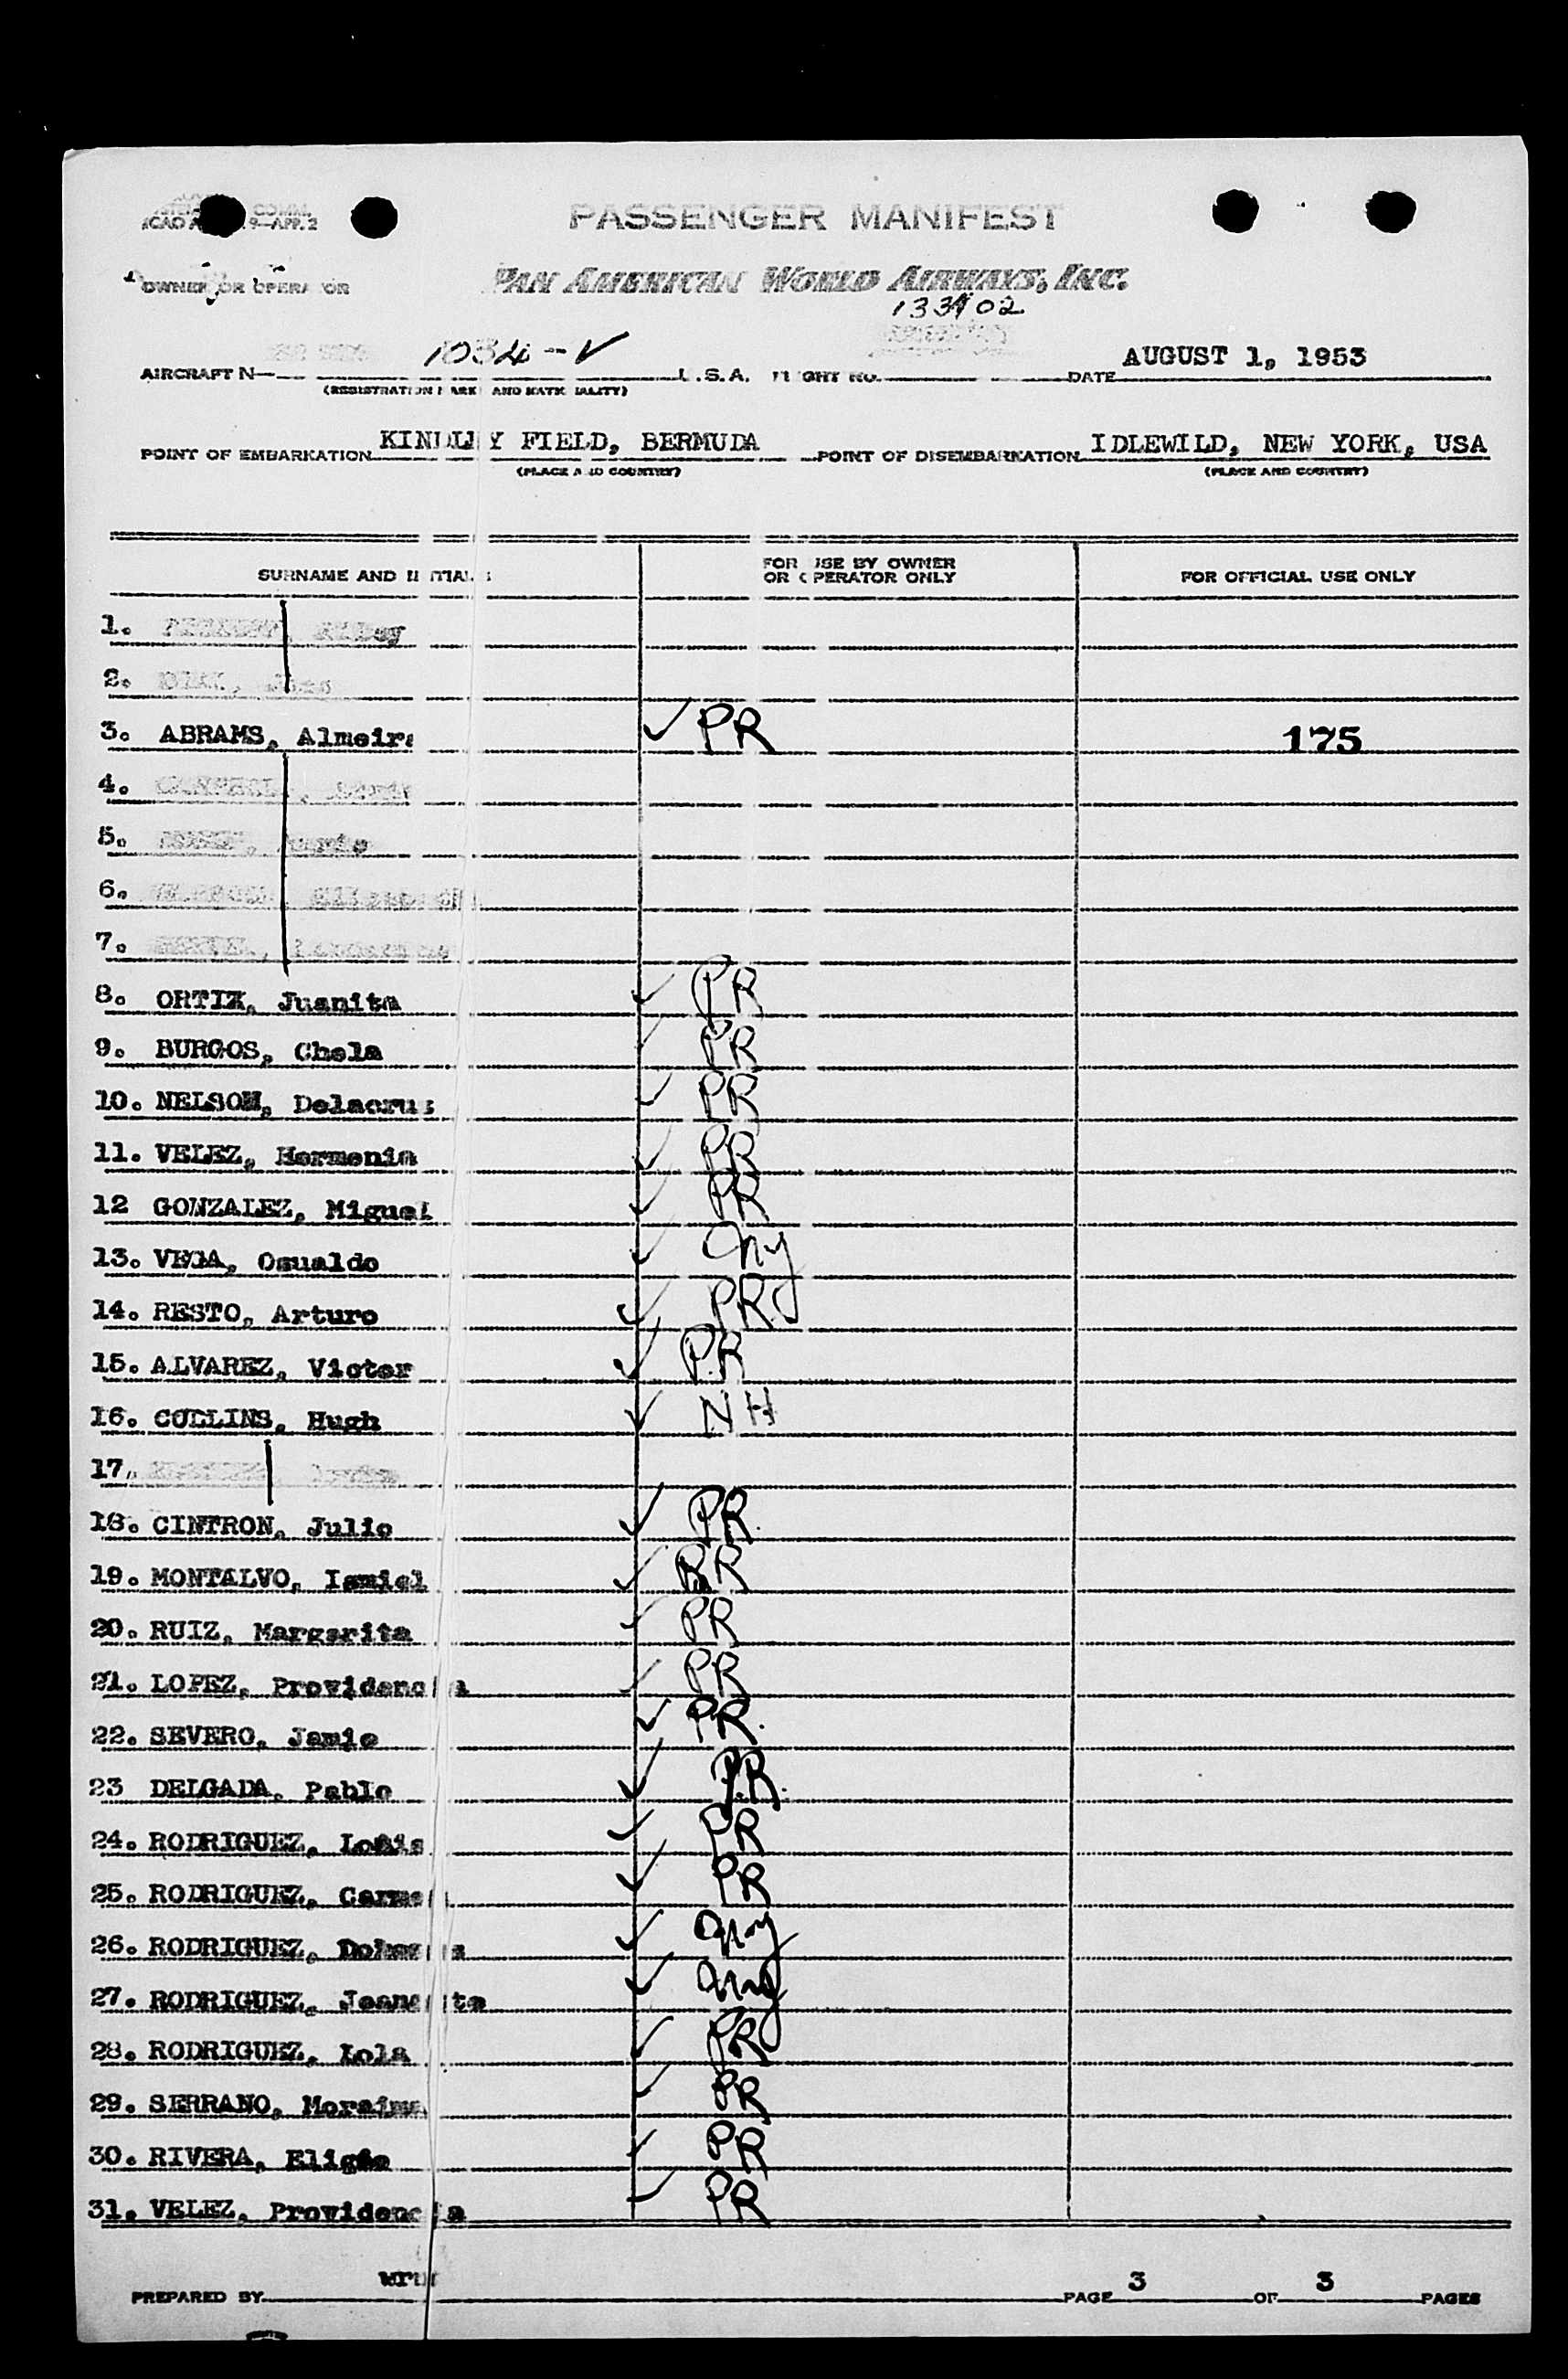 PASSENGER MANIFEST
PAN AMERICAN WORLD AIRWAYS, INC.
OWNER OR OPERATOR
1034-V
AIRCRAFT N U.S.A. FLIGHT NO. DATE AUGUST 1, 1953
(REGISTRATION MARK AND NATIONALITY)
POINT OF EMBARKATION KINDLEY FIELD, BERMUDA POINT OF DISEMBARKATION IDLEWILD, NEW YORK, USA
(PLACE AND COUNTRY) (PLACE AND COUNTRY)
SURNAME AND INITIALS FOR USE BY OWNER OR OPERATOR ONLY FOR OFFICIAL USE ONLY
1.
2.
3. ABRAMS, Almeira ✓ PR 175
4.
5.
6.
7.
8. ORTIZ, Juanita ✓ PR
9. BURGOS, Chela ✓ PR
10. NELSON, Delacruz ✓ PR
11. VELEZ, Hermenia ✓ PR
12 GONZALEZ, Miguel ✓ PR
13. VEGA, Osualdo ✓ ny
14. RESTO, Arturo ✓ PR
15. ALVAREZ, Victor ✓ PR
16. COLLINS, Hugh ✓ NH
17.
18. CINTRON, Julio ✓ PR
19. MONTALVO, Ismiel ✓ PR
20. RUIZ, Margarita ✓ PR
21. LOPEZ, Providencia ✓ PR
22. SEVERO, Jamie ✓ PR.
23 DELGADA, Pablo ✓ P.R.
24. RODRIGUEZ, ✓ PR
25. RODRIGUEZ, Carmen ✓ PR
26. RODRIGUEZ, ✓ ny
27. RODRIGUEZ, Jeanette ✓ ny
28. RODRIGUEZ, Lola ✓ PR
29. SERRANO, Moraima ✓ PR
30. RIVERA, Eligio ✓ PR
31. VELEZ, Providencia ✓ PR
PREPARED BY PAGE 3 OF 3 PAGES